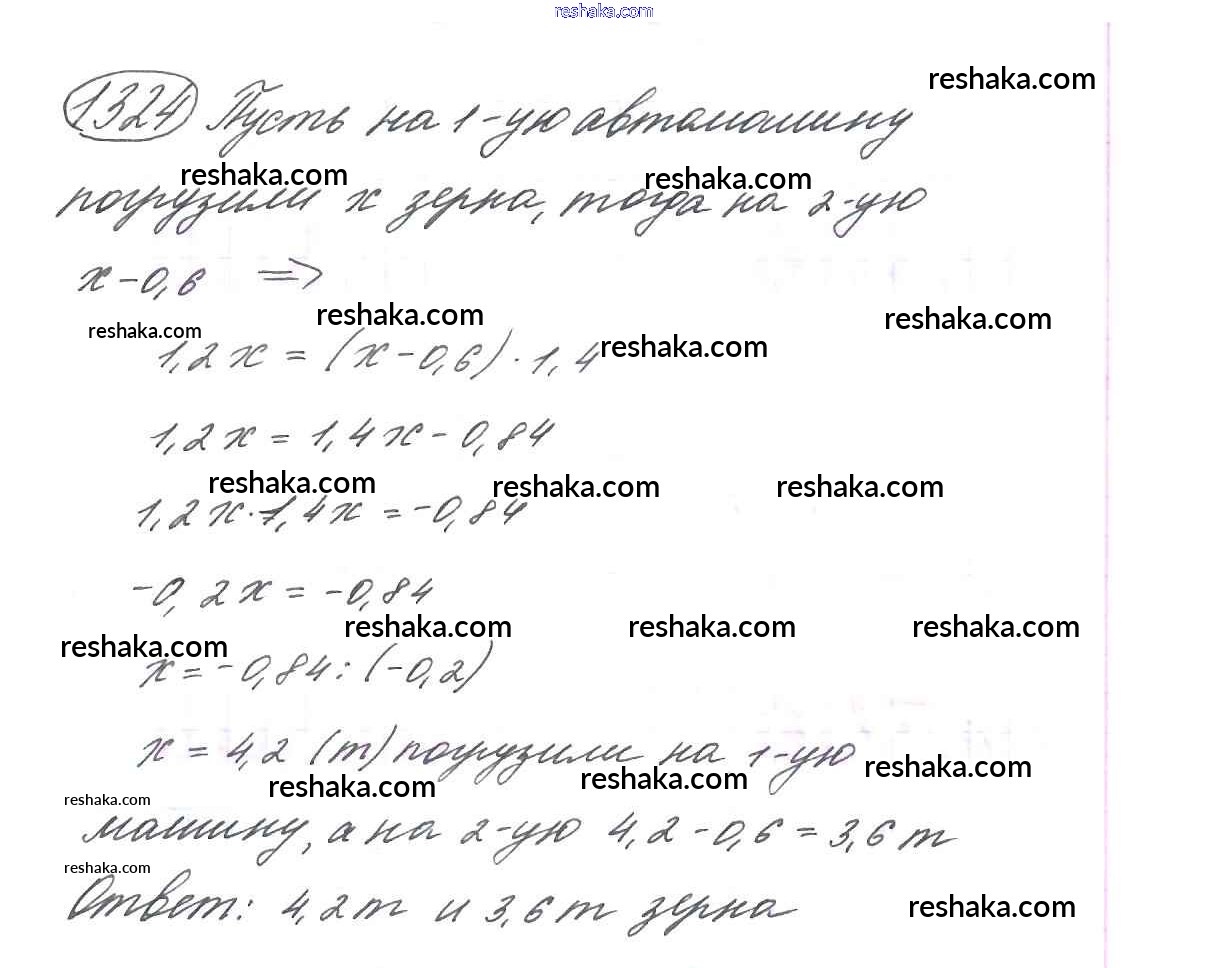 reshaka.com
reshaka.com
1324 Пусть на 1-ую автомашину
reshaka.com reshaka.com
погрузили x зерна, тогда на 2-ую
x-0,6 =>
reshaka.com reshaka.com reshaka.com
1,2x = (x-0,6)·1,4
reshaka.com
1,2x = 1,4x - 0,84
reshaka.com reshaka.com reshaka.com
1,2x-1,4x = -0,84
-0,2x = -0,84
reshaka.com reshaka.com reshaka.com reshaka.com
x = -0,84:(-0,2)
x = 4,2 (т) погрузили на 1-ую
reshaka.com reshaka.com reshaka.com
reshaka.com
машину, а на 2-ую 4,2-0,6=3,6 т
reshaka.com
Ответ: 4,2 т и 3,6 т зерна
reshaka.com